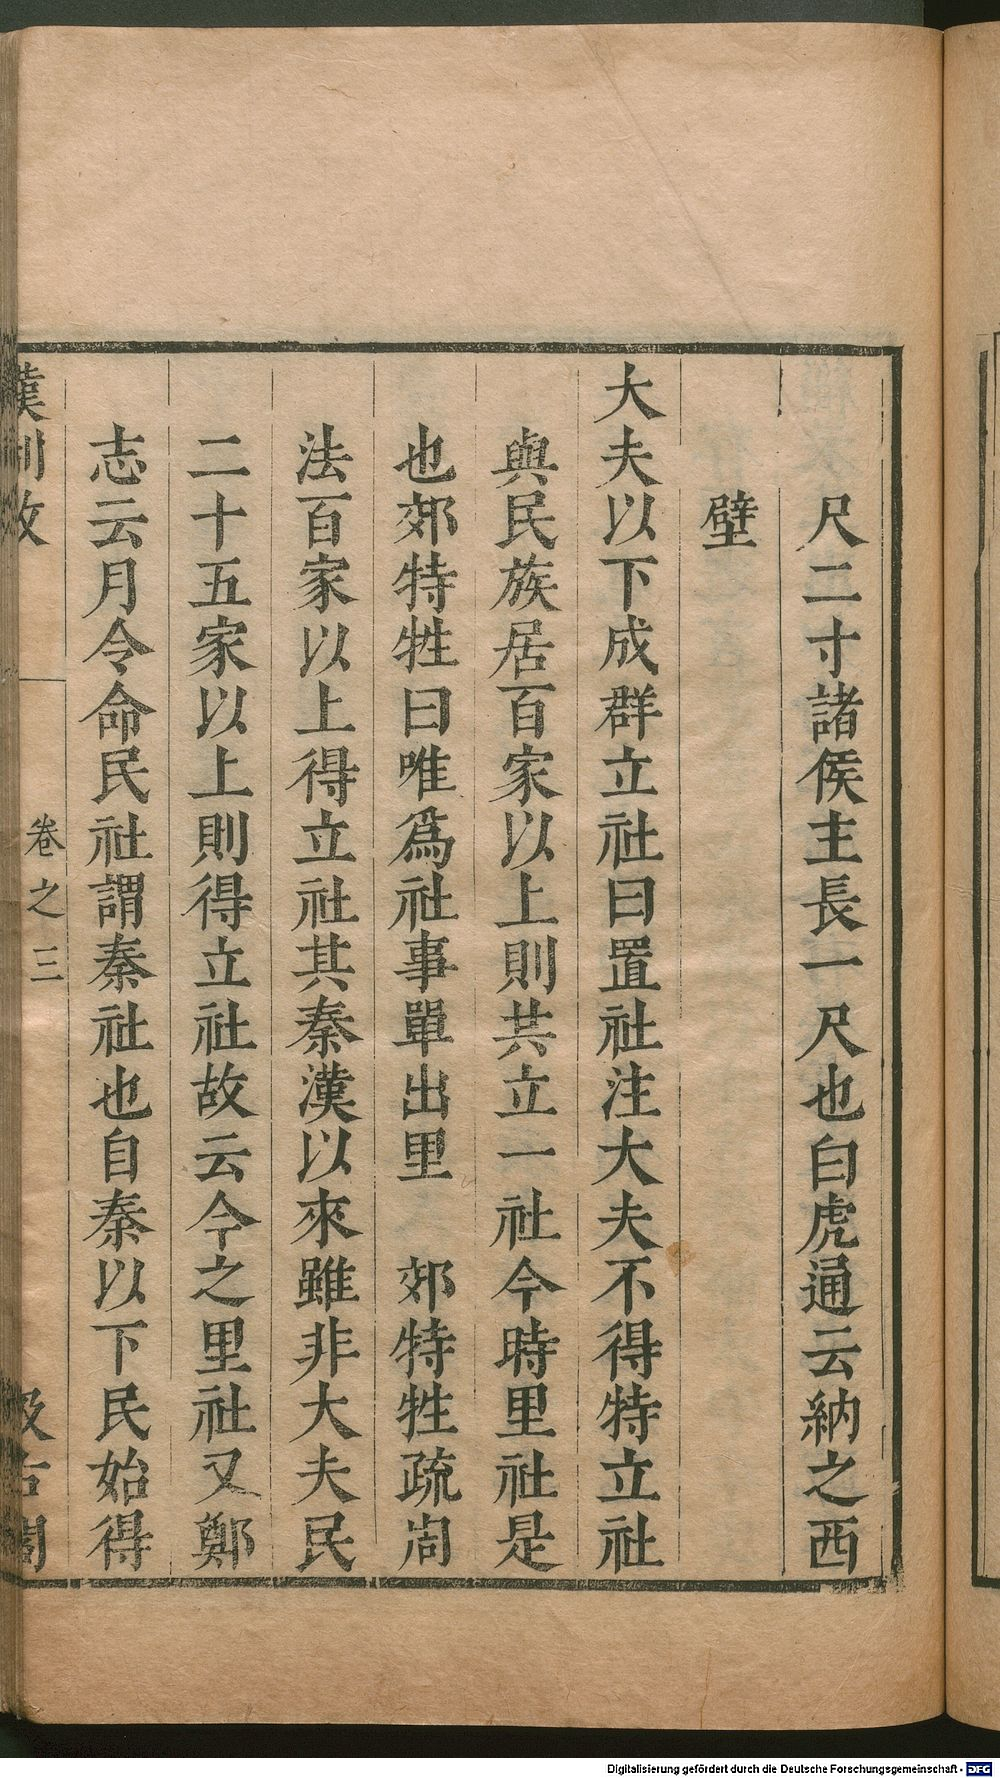 尺二寸諸侯主長一尺也白虎通云納之西
壁
大夫以下成群立社曰置社注大夫不得特立社
與民族居百家以上則共立一社今時里社是
也郊特牲曰唯爲社事單出里　郊特牲疏周
法百家以上得立社其秦漢以來雖非大夫民
二十五家以上則得立社故云今之里社又鄭
志云月令命民社謂秦社也自秦以下民始得
漢制攷　卷之三　汲古閣
Digitalisierung gefördert durch die Deutsche Forschungsgemeinschaft - DFG